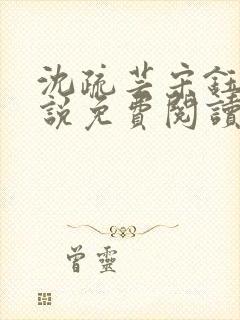 沈疏芸宋鈺
說免費閱讀
曾靈